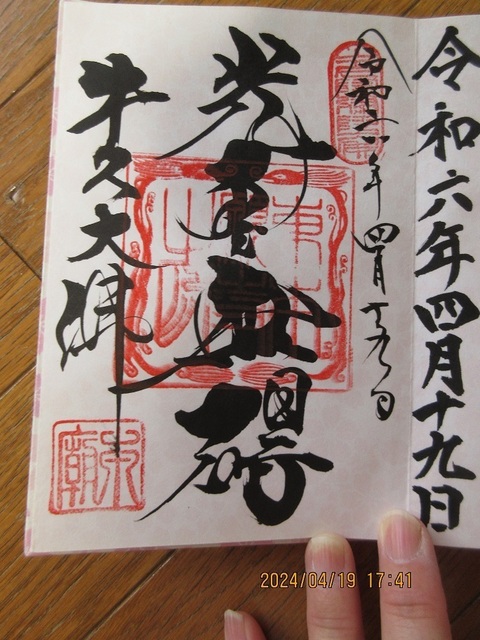 令和六年四月十九日
令和六年四月十九日
光雲無碍
牛久大佛